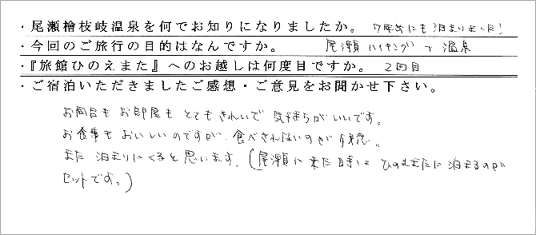 ・尾瀬檜枝岐温泉を何でお知りになりましたか。 7年前にも泊まりました!
・今回のご旅行の目的はなんですか。 尾瀬ハイキングと温泉
・『旅館ひのえまた』へのお越しは何度目ですか。 2回目
・ご宿泊いただきましたご感想・ご意見をお聞かせ下さい。
お風呂もお部屋もとてもきれいで気持ちがいいです。
お食事もおいしいのですが、食べきれないのが残念。
また泊まりにくると思います。(尾瀬に来た時は ひのえまたに泊まるのが
セットです。)